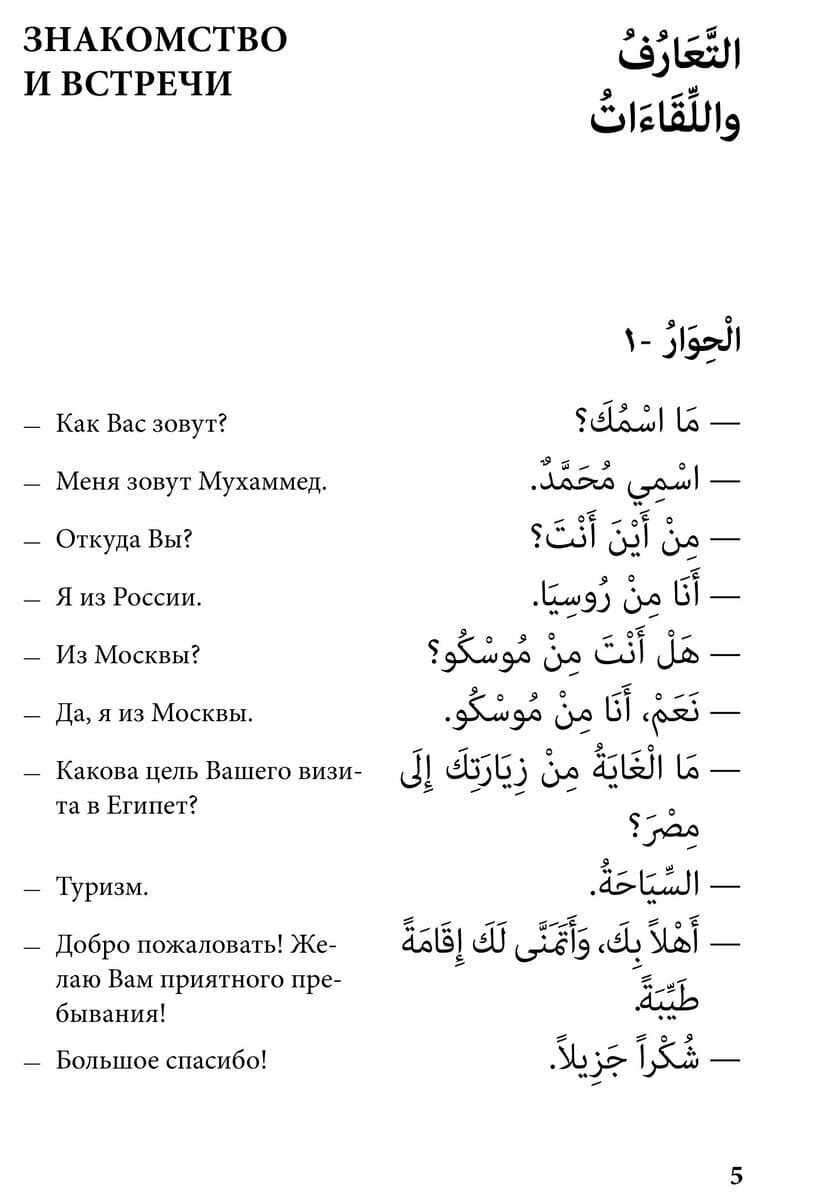 ЗНАКОМСТВО
И ВСТРЕЧИ
التَّعَارُفُ
واللِّقَاءَاتُ
الْحِوَارُ -١
— Как Вас зовут?
— مَا اسْمُكَ؟
— Меня зовут Мухаммед.
— اسْمِي مُحَمَّدٌ.
— Откуда Вы?
— مِنْ أَيْنَ أَنْتَ؟
— Я из России.
— أَنَا مِنْ رُوسِيَا.
— Из Москвы?
— هَلْ أَنْتَ مِنْ مُوسْكُو؟
— Да, я из Москвы.
— نَعَمْ، أَنَا مِنْ مُوسْكُو.
— Какова цель Вашего визи-
та в Египет?
— مَا الْغَايَةُ مِنْ زِيَارَتِكَ إِلَى
مِصْرَ؟
— Туризм.
— السِّيَاحَةُ.
— Добро пожаловать! Же-
лаю Вам приятного пре-
бывания!
— أَهْلاً بِكَ، وَأَتَمَنَّى لَكَ إِقَامَةً
طَيِّبَةً.
— Большое спасибо!
— شُكْراً جَزِيلاً.
5